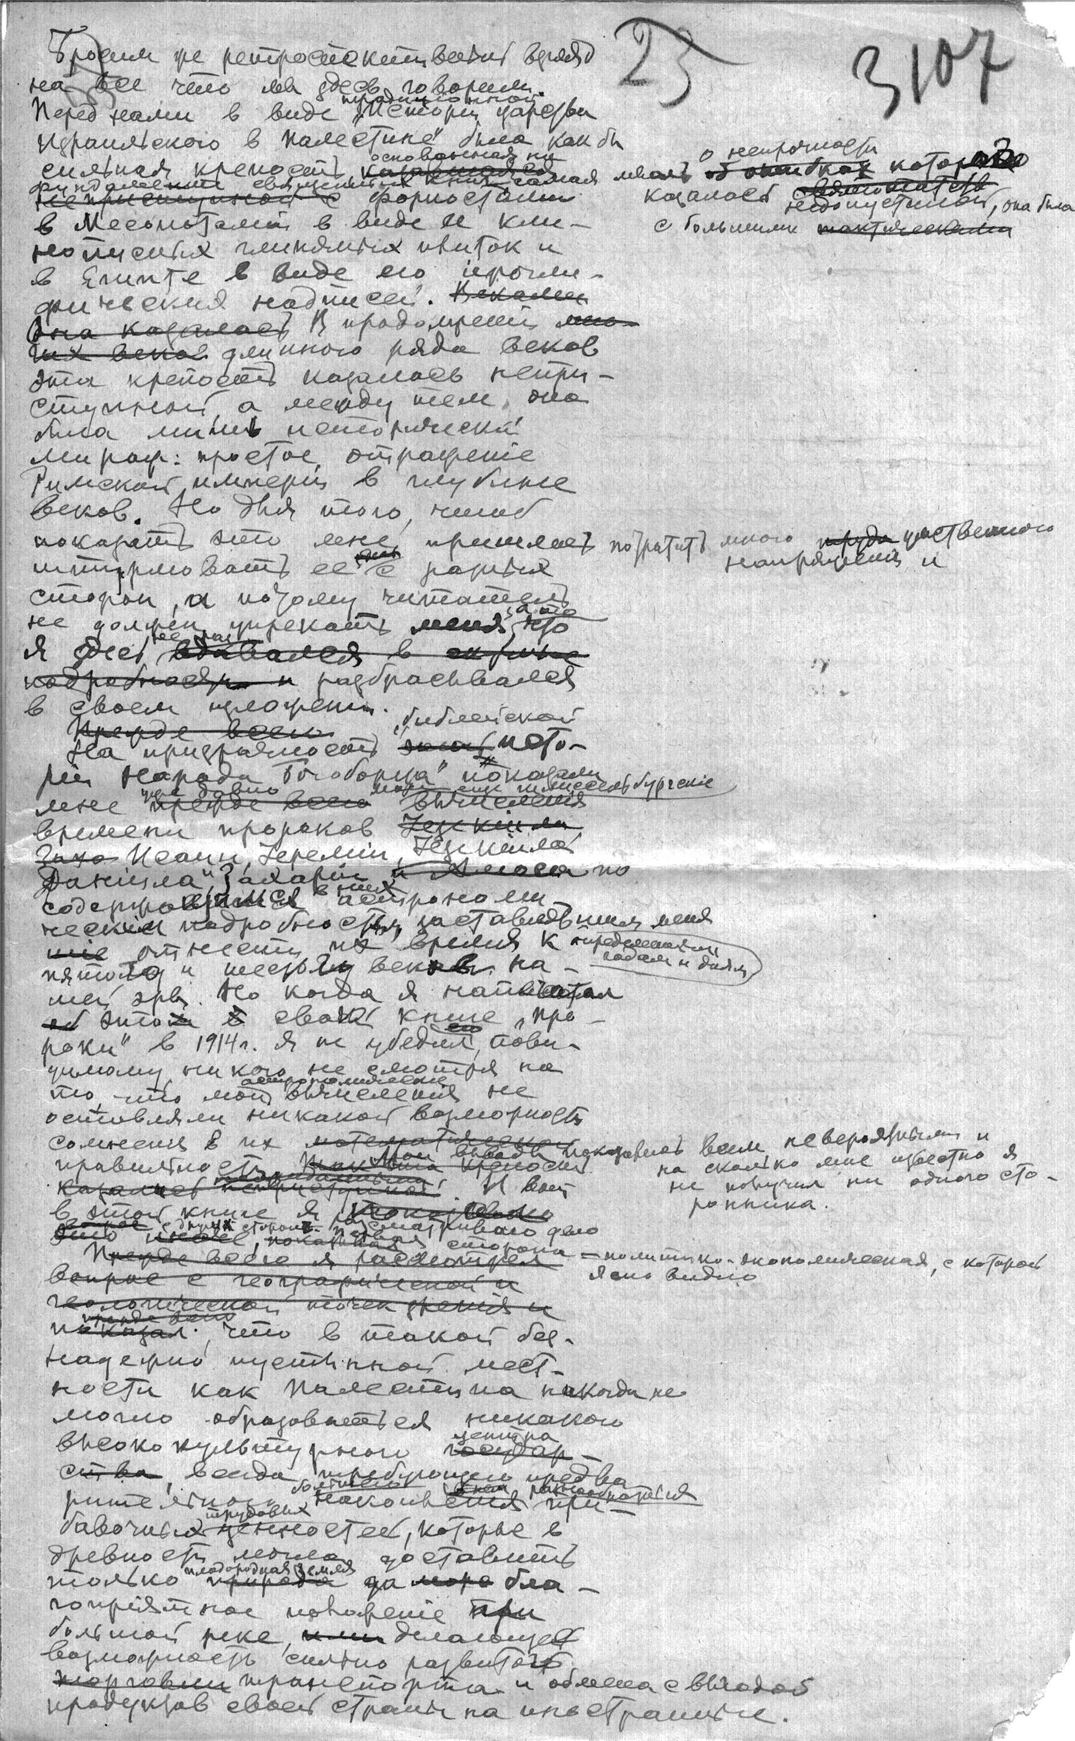 23
3107
Бросим же ретроспективный взгляд
на все что мы здесь говорили.
Перед нами в виде традиционной "Истории царства
Израильского в Палестине" была как бы
сильная крепость, основанная на
фундаменте священных книг, самая мысль о непрочности которого
казалась недопустимой, она была
с большими форпостами
в Месопотамии в виде ее кли-
нописных глиняных плиток и
в Египте в виде его иерогли-
фических надписей.
В продолжении
длинного ряда веков
эта крепость казалась непри-
ступной, а между тем она
была лишь исторический
мираж: простое отражение
Римской империи в глубине
веков. Но для того, чтоб
показать это мне пришлось потратить много умственного
напряжения и
штурмовать ее с разных
сторон, а потому читатель
не должен упрекать меня за то что
я здесь не раз разбрасывался
в своем изложении.
На призрачность библейской исто-
рии народа "Богоборца" показали
мне уже давно мои еще шлиссельбургские вычисления
времени пророков
Исаии, Иеремии, Иезкиила
Даниила, Захарии по
содержащимся в них астрономи-
ческим подробностям, заставившия меня
отнести их время к определенным
годам и дням
пятого и шестого веков на-
шей эры. Но когда я напечатал
это в своей книге "Про-
роки" в 1914 г. я не убедил ею, пови-
димому никого не смотря на
то, что мои астрономические вычисления не
оставляли никакой возможности
сомнения в их
правильности. Мои выводы показались всем невероятными и
на сколько мне известно я
не получил ни одного сто-
ронника.
И вот
в этой книге я рассматриваю дело
с других сторон. Первая сторона – политико-экономическая, с которой
ясно видно
прежде всего, что в такой без-
надежно пустынной мест-
ности как Палестина никогда не
могло образоваться никакого
высоко культурного центра
всегда требующего предва-
рительного накопления при-
бавочных трудовых ценностей, которые в
древности могла доставить
только плодородная земля да бла-
гоприятное положение при
большой реке, делающей
возможность сильно развитой
транспорта и обмена с выгодой
продуктов своей страны на иностранные.